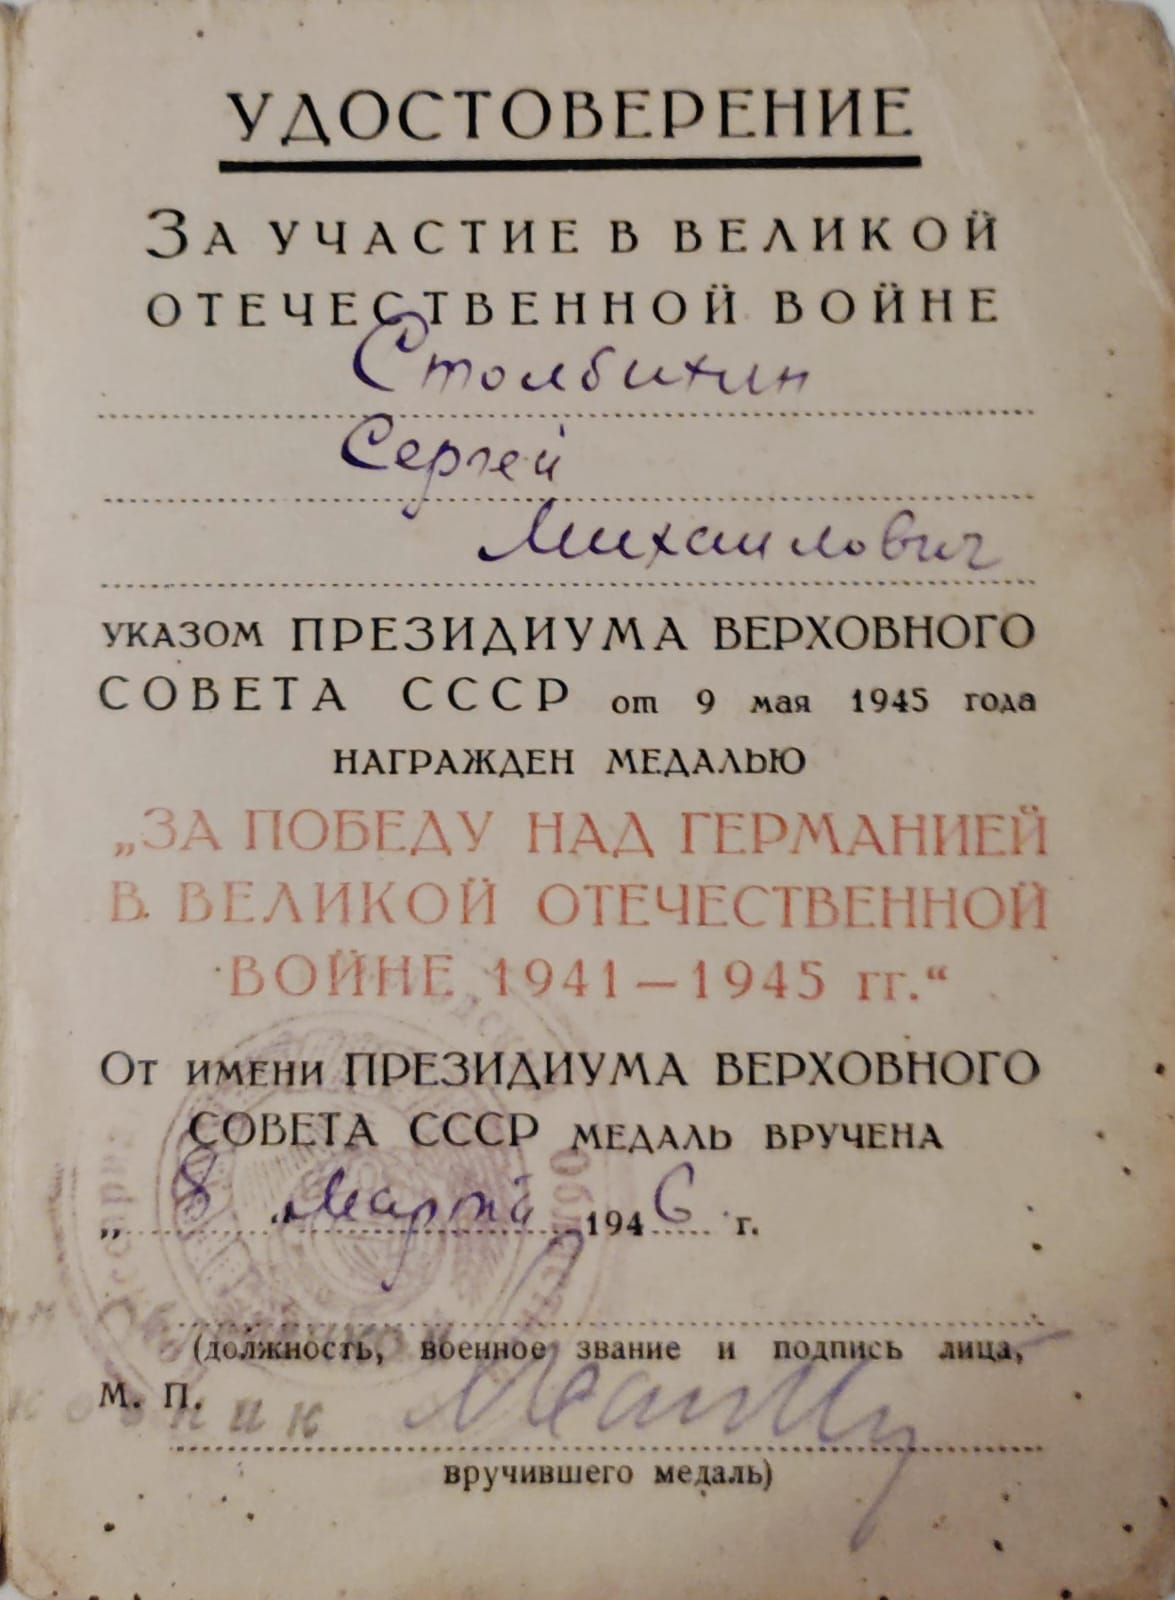 УДОСТОВЕРЕНИЕ
ЗА УЧАСТИЕ В ВЕЛИКОЙ
ОТЕЧЕСТВЕННОЙ ВОЙНЕ
Столбихин
Сергей
Михаилович
УКАЗОМ ПРЕЗИДИУМА ВЕРХОВНОГО
СОВЕТА СССР от 9 мая 1945 года
НАГРАЖДЕН МЕДАЛЬЮ
„ЗА ПОБЕДУ НАД ГЕРМАНИЕЙ
В ВЕЛИКОЙ ОТЕЧЕСТВЕННОЙ
ВОЙНЕ 1941—1945 гг.“
ОТ ИМЕНИ ПРЕЗИДИУМА ВЕРХОВНОГО
СОВЕТА СССР МЕДАЛЬ ВРУЧЕНА
„ 8 „ Марта 1946 г.
(должность, военное звание и подпись лица,
М. П.
вручившего медаль)